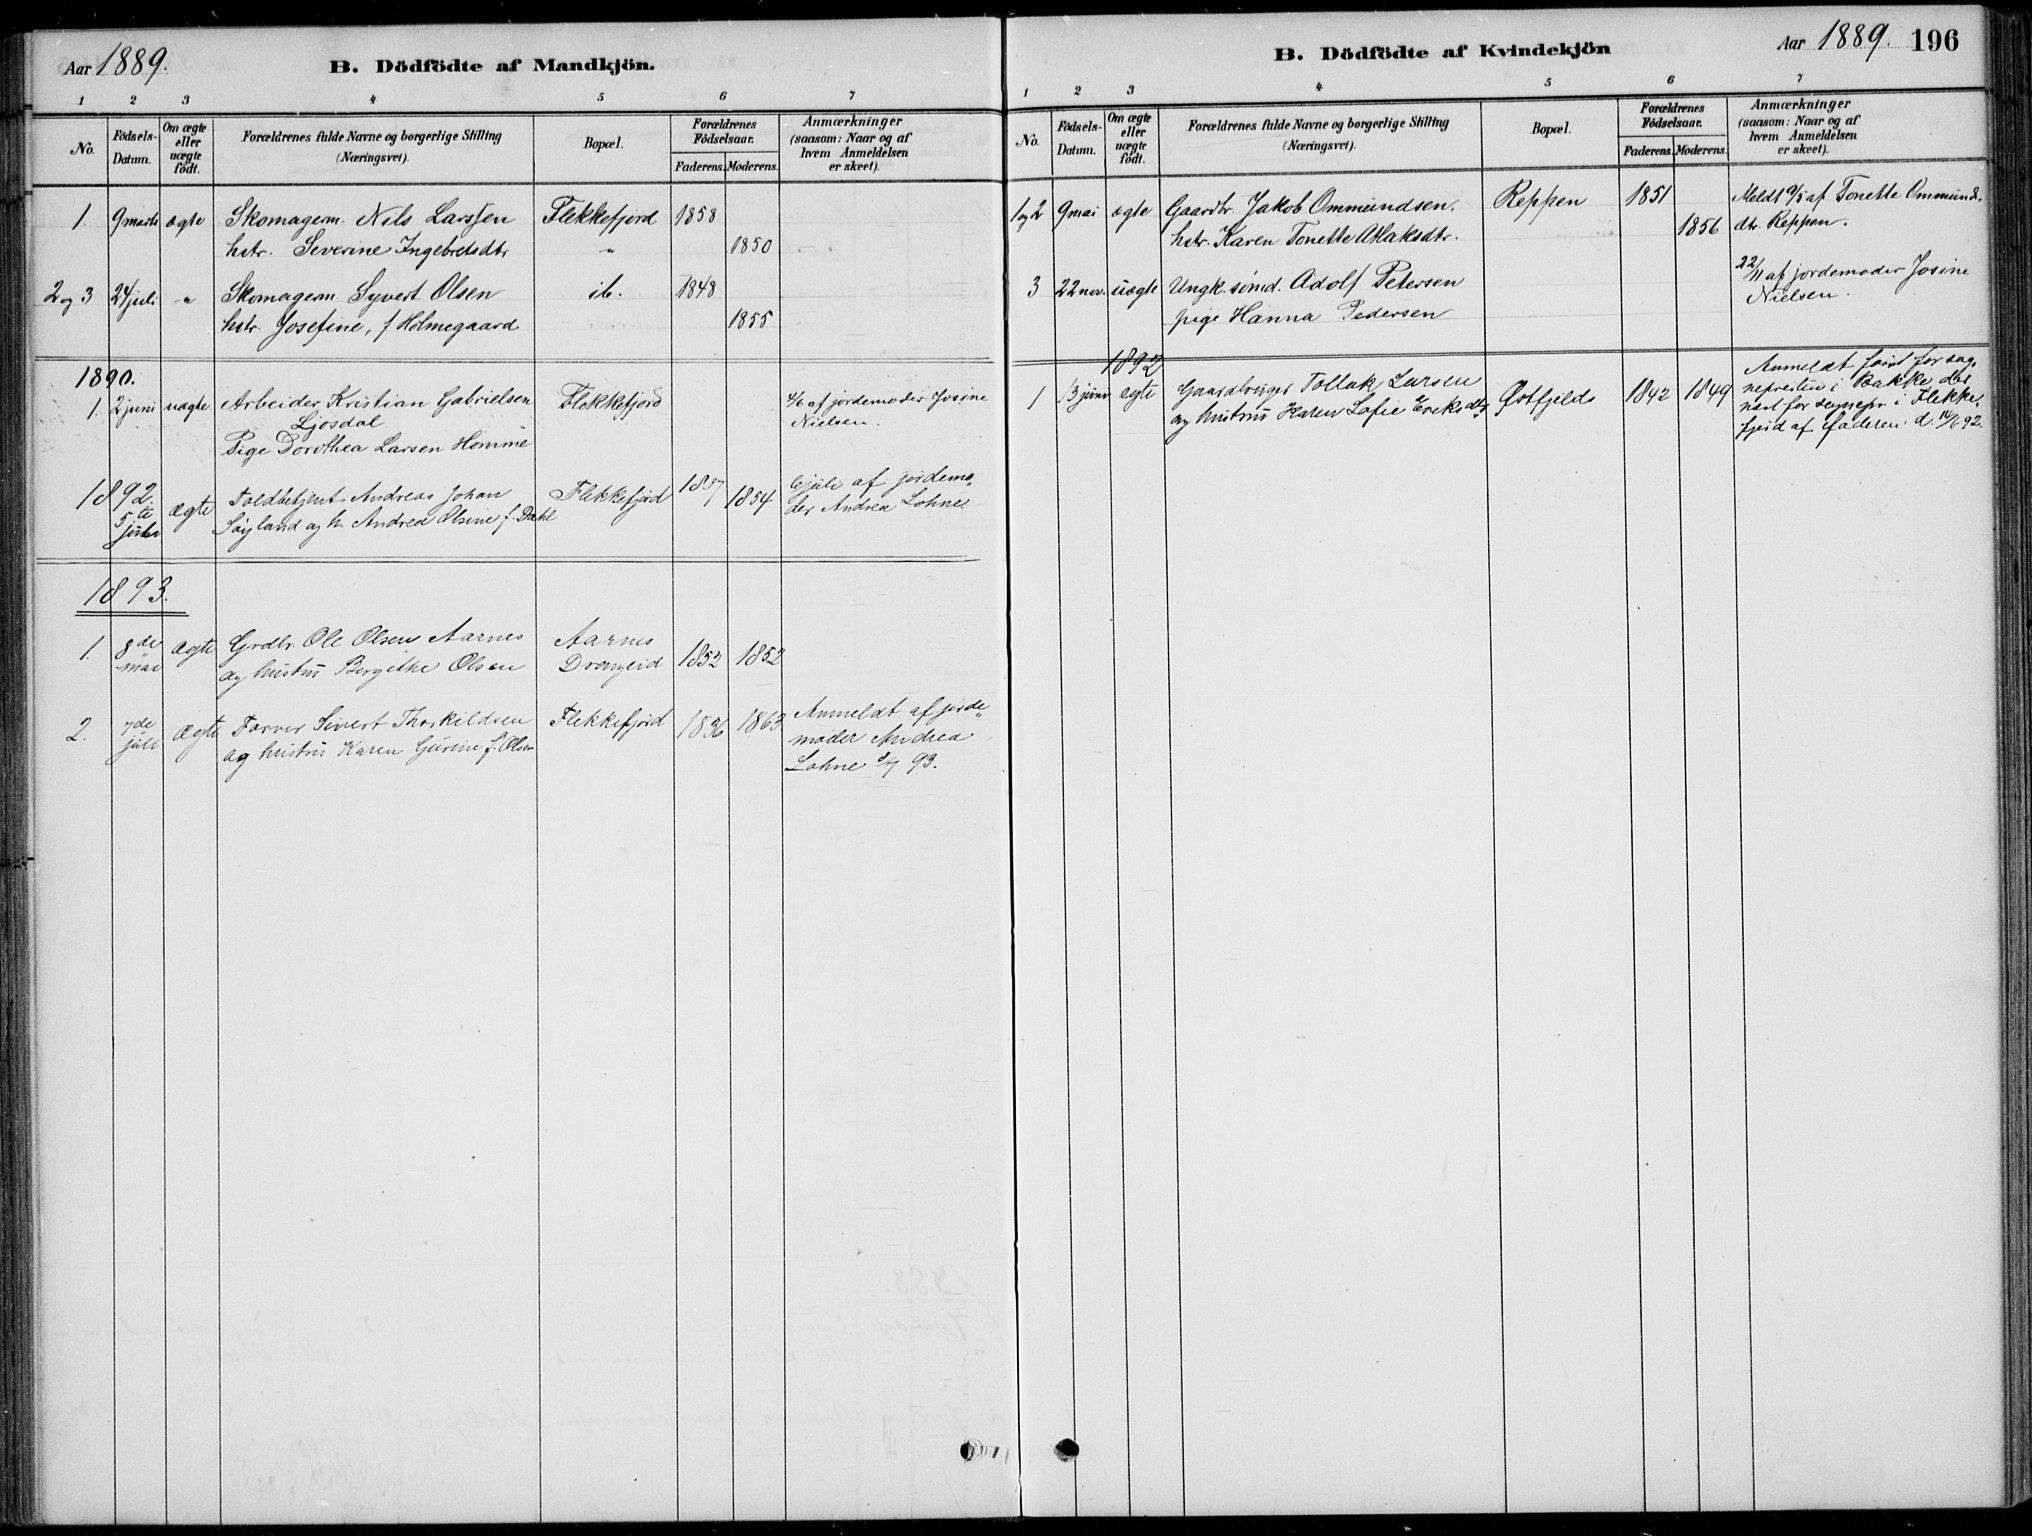 Aar 1889.
B. Dödfödte af Mandkjön.
1 2 3 4 5 6 7
No.
Födsels-Datum.
Om ægte eller uægte födt.
Forældrenes fulde Navne og borgerlige Stilling
(Næringsvei).
Bopæl.
Forældrenes Födselsaar.
Faderens. Moderens.
Anmærkninger
(saasom: Naar og af
hvem Anmeldelsen
er skeet).
1. 9 marts ægte Skomagerm. Nils Larsen Flekkefjord 1858
hstr. Severine Ingebretsdtr " 1850
2 og 3 24 juli " Skomagerm. Syvert Olsen ib. 1848
hstr. Josefine, f Holmegaard 1855
1890.
1. 2 juni uægte Arbeider Kristian Gabrielsen Flekkefjord 4/6 af jordemoder Josine
Ljosdal Nielsen.
Pige Dorothea Larsen Homme
1892.
5te ægte Toldbetjent Andreas Johan Flekkefjord 1837 1854 6 juli af jordemo-
Søyland og h. Andrea Olsine f. Dahl der Andrea Lohne
1893.
1. 8de mai ægte Grdbr. Ole Olsen Aarnes Aarnes 1852 1852
og hustru Bergithe Olsen Drangeid
2. 7de juli ægte Farver Sivert Thorkildsen Flekkefjord 1836 1863 Anmeldt af jorde-
og hustru Karen Gurine f. Olsen moder Andrea
Lohne 8/7 93.
B. Dödfödte af Kvindekjön
Aar 1889. 196
1 2 3 4 5 6 7
No.
Födsels-Datum.
Om ægte eller uægte födt.
Forældrenes fulde Navne og borgerlige Stilling
(Næringsvei).
Bopæl.
Forældrenes Födselsaar.
Faderens. Moderens.
Anmærkninger
(saasom: Naar og af
hvem Anmeldelsen
er skeet).
1 og 2 9 mai ægte Gaardbr. Jakob Ommundsen. Reppen 1851 Meldt 9/5 af Tonette Ommunds-
hstr. Karen Tonette Aslaksdtr. 1856 dtr. Reppen.
3 22 nov. uægte Ungk. sømd. Adolf Petersen 22/11 af jordemoder Josine
pige Hanna Pedersen Nielsen.
1892
1 13 juni ægte Gaardbruger Tollak Larsen Østfjelds 1842 1849 Anmeldt først for sog-
og hustru Karen Sofie Eriksdtr nepresten i Bakke der
næst for sognepr. i Flekke-
fjord af faderen d. 14/6 92.